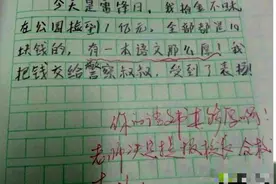 今天是雷锋日，我拾金不昧
在公园捡到1亿元，全部都是1
块钱的，有一本语文那么厚！我
把钱交给警察叔叔，受到了表扬
你的语文书真厚啊
老师决定